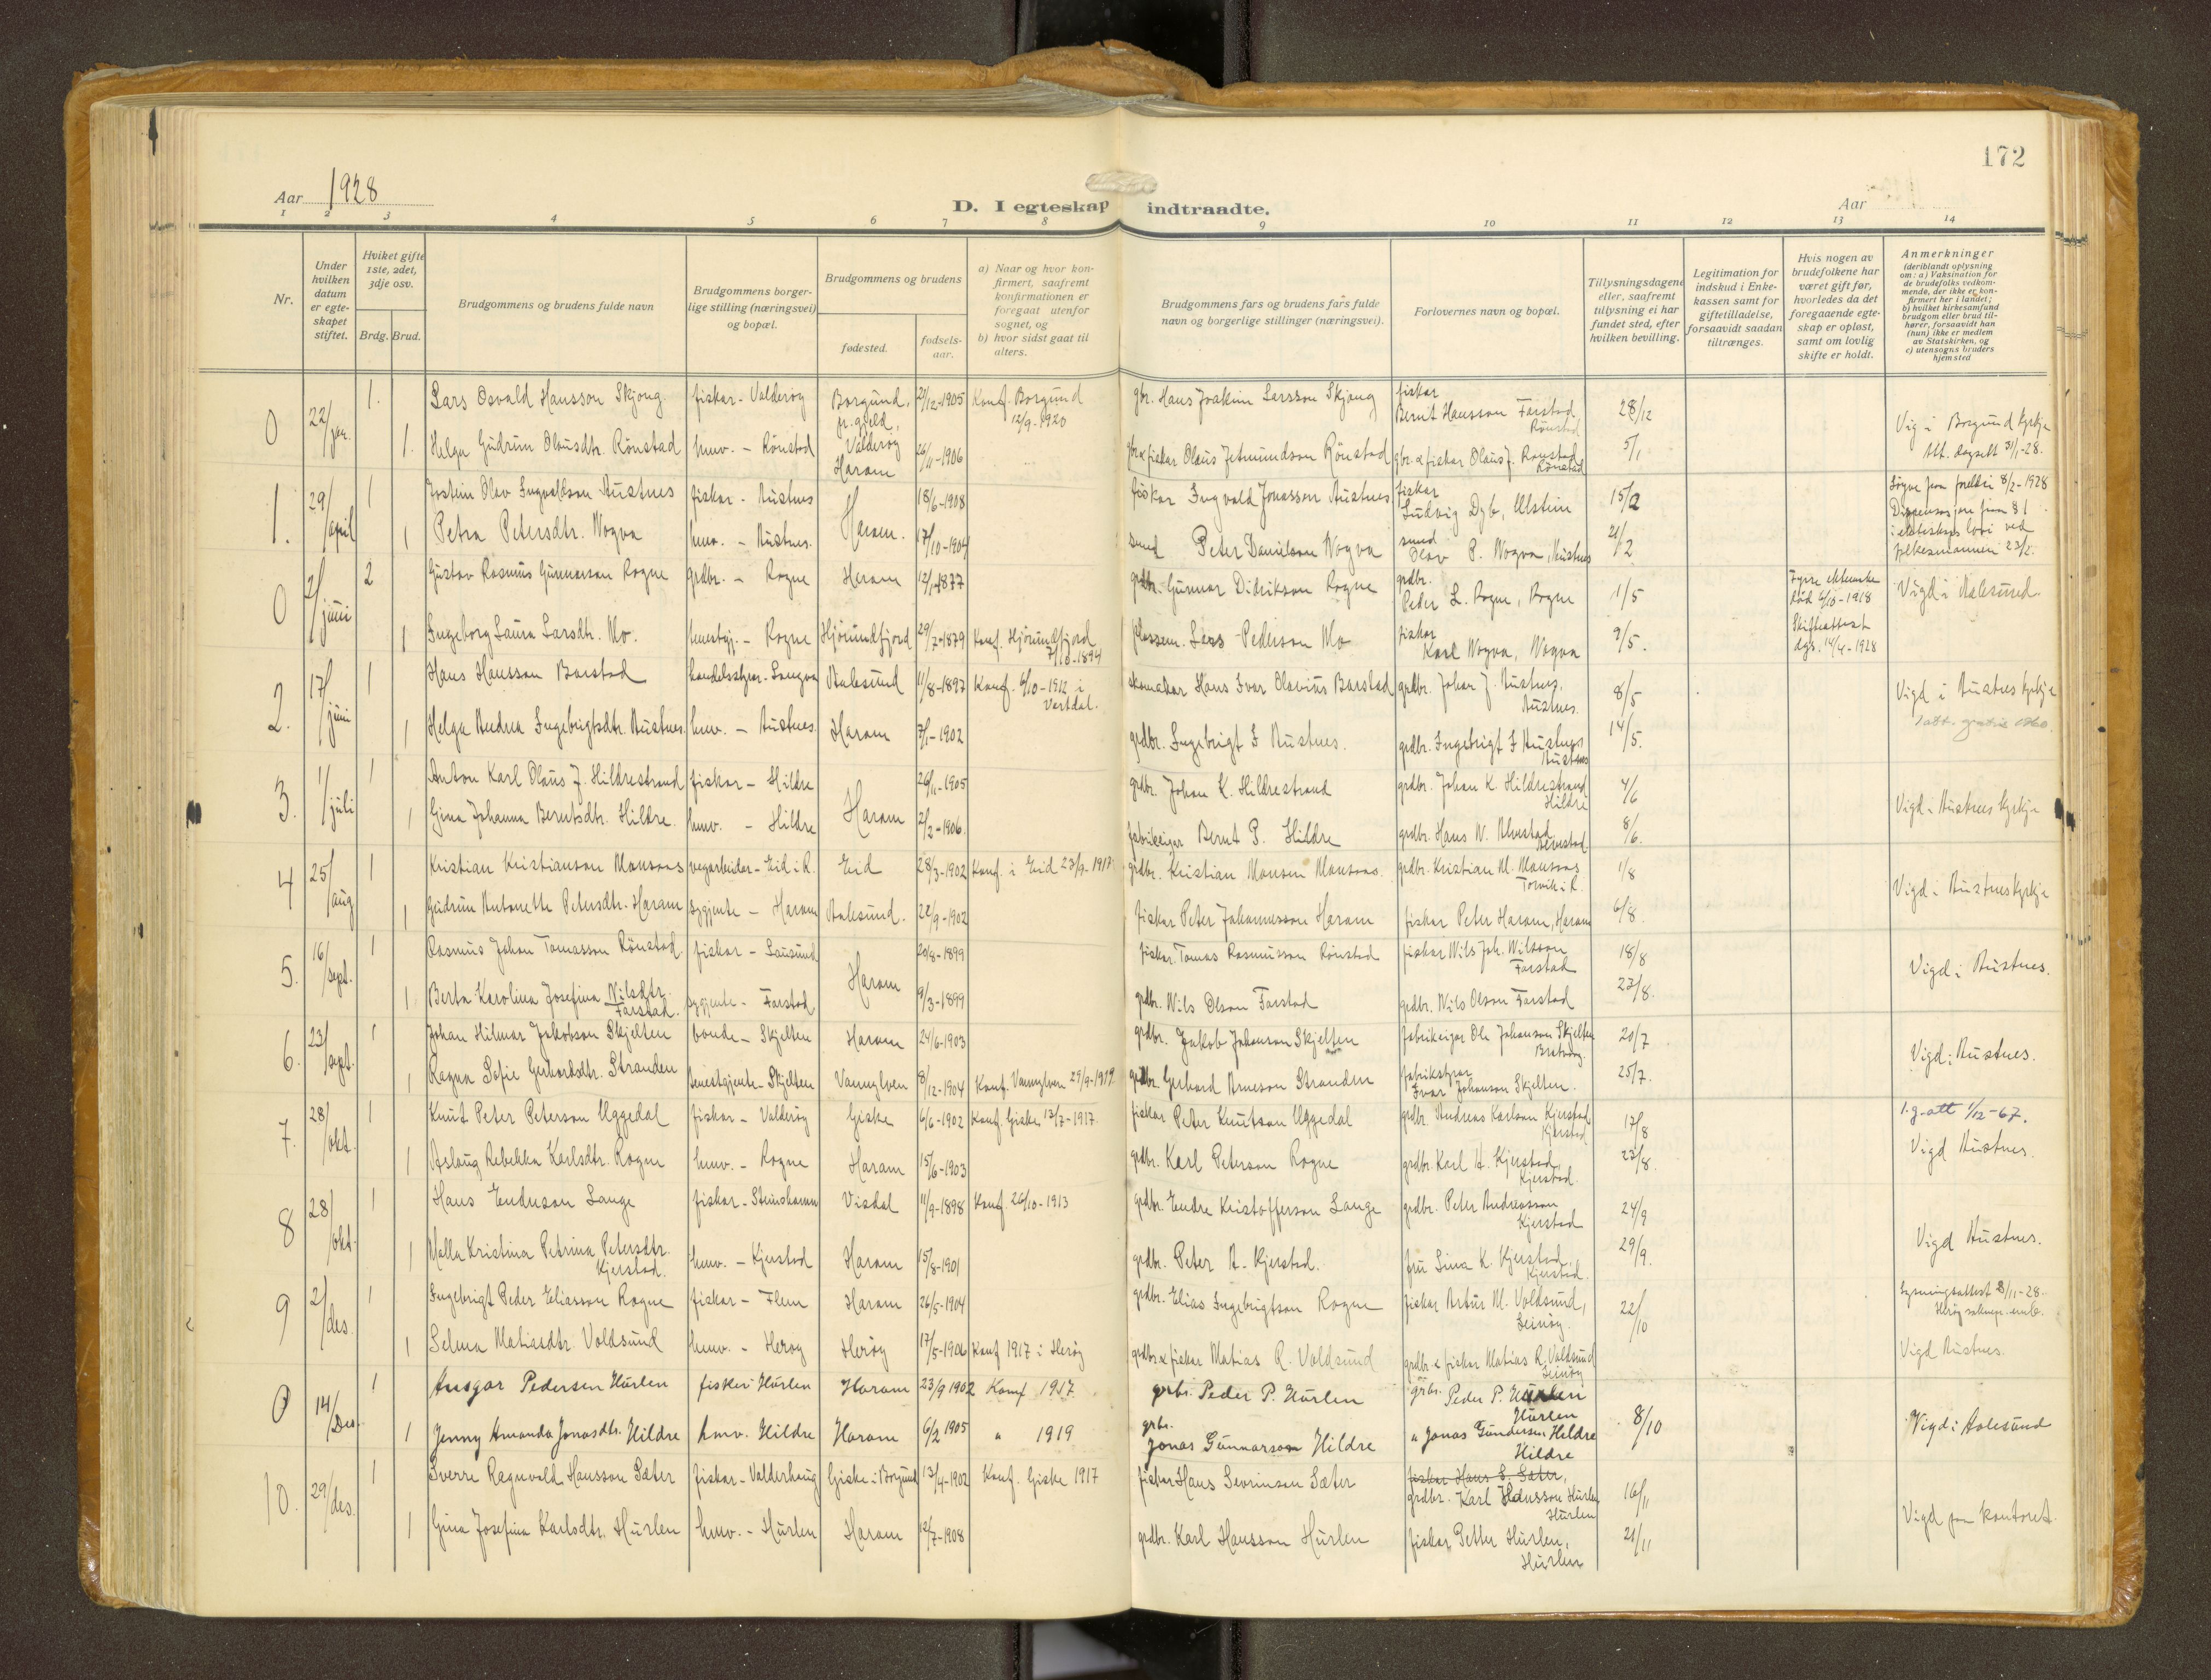 172
Aar 1928
D. I egteskap indtraadte.
Aar
1 2 3 4 5 6 7 8 9 10 11 12 13 14
Nr.
Under hvilken datum er egteskapet stiftet.
Hviket gifte 1ste, 2det, 3dje osv.
Brdg. Brud.
Brudgommens og brudens fulde navn
Brudgommens borgerlige stilling (næringsvei) og bopæl.
Brudgommens og brudens
fødested.
fødselsaar.
a) Naar og hvor konfirmert, saafremt konfirmationen er foregaat utenfor sognet, og
b) hvor sidst gaat til alters.
Brudgommens fars og brudens fars fulde navn og borgerlige stillinger (næringsvei).
Forlovernes navn og bopæl.
Tillysningsdagene eller, saafremt tillysning ei har fundet sted, efter hvilken bevilling.
Legitimation for indskud i Enkekassen samt for giftetilladelse, forsaavidt saadan tiltrænges.
Hvis nogen av brudefolkene har været gift før, hvorledes da det foregaaende egteskap er opløst, samt om lovlig skifte er holdt.
Anmerkninger (deriblandt oplysning om: a) Vaksination for de brudefolks vedkommende, der ikke er konfirmert her i landet; b) hvilket kirkesamfund brudgom eller brud tilhører, forsaavidt han (hun) ikke er medlem av Statskirken, og c) utensogns bruders hjemsted
0 22/jan. 1. Lars Osvald Hansson Skjong fiskar - Valderøy Borgund, pr.gjeld, Valderøy 21/12-1905 Konf. Borgund 12/9-1920 gbr. Hans Joakim Larsson Skjong fiskar Bernt Hansson Farstad, Rønstad 28/12
1. Helga Gudrun Olausdtr. Rønstad huv. - Rønstad Haram 26/11-1906 gbr. & fiskar Olaus Jetmundson Rønstad gbr. & fiskar Olaus J. Rønstad Rønstad 5/1 Vig i Borgund kyrkje Att. dagsett 31/1-28.
1. 29/april 1 Jostein Olav Ingvaldson Austnes fiskar - Austnes Haram. 18/6-1908 fiskar Ingvald Jonasson Austnes fiskar Ludvig Dyb, Ulstein 15/2
1 Petra Petersdtr. Nogva huv. - Austnes. 17/10-1904 smed Peter Danielson Nogva smed Olav P. Nogva, Austnes 21/2 Løyve fra foreldri 8/2-1928 Dispensasjon fraa § 1 i ekteskaps lovi ved fylkesmannen 23/2.
0 2/juni 2 Gustav Rasmus Gunnarson Rogne grdbr. - Rogne Haram 12/1-1877 grdbr. Gunnar Didrikson Rogne grdbr. Peder L. Rogne, Rogne 1/5 Fyrre ektemake død 6/10-1918 Vigd i Aalesund.
1 Ingeborg Laura Larsdtr. Mo. - Rogne Hjørundfjord 29/7-1879 Konf. Hjørundfjord 7/10-1894 plassem. Lars Pederson Mo fiskar Karl Nogva, Nogva 9/5. Skifteattest dgs. 14/4-1928
2. 17/juni 1 Hans Hansson Barstad handelsstyrar - Longva Aalesund 11/8-1897 Konf. 6/10-1912 i Vartdal. skomakar Hans Ivar Olavius Barstad grdbr. Johan J. Austnes. Austnes. 8/5 Vigd i Austnes kyrkje
1 Helga Andrea Ingebrigtsdtr. Austnes. huv. - Austnes. Haram 7/1-1902 grdbr. Ingebrigt I Austnes. grdbr. Ingebrigt I Austnes Austnes 14/5.
3. 1/juli 1 Anton Karl Olaus J. Hildrestrand fiskar - Hildre Haram 26/11-1905 grdbr. Johan K. Hildrestrand grdbr. Johan K. Hildrestrand Hildre 4/6
1 Gina Johanna Berntsdtr. Hildre. huv. - Hildre 2/2-1906. fabrikeigar Bernt P. Hildre grdbr. Hans N. Alvestad Alvestad 8/6. Vigd i Austnes kyrkje
4 25/aug 1 Kristian Kristianson Monsaas vegarbeider - Eid i R. Eid 28/3-1902 Konf. i Eid 23/9-1917 grdbr. Kristian Monsen Monsaas. grdbr. Kristian M. Monsaas Torvik i R. 1/8
1 Gudrun Antonette Petersdtr. Haram sygjente - Haram Aalesund. 22/9-1902 fiskar Peter Johannesson Haram fiskar Peter Haram, Haram 6/8. Vigd i Austnes kyrkje
5. 16/sept. 1 Rasmus Johan Tomasson Rønstad. fiskar - Lausund Haram 20/8-1899 fiskar. Tomas Rasmusson Rønstad fiskar Nils Joh. Nilsson Farstad 18/8
1 Berta Karolina Josefina Nilsdtr. Farstad. sygjente - Farstad, 9/3-1899 grdbr. Nils Olson Farstad grdbr. Nils Olson Farstad 23/8. Vigd i Austnes.
6. 23/sept. 1 Johan Hilmar Jakobson Skjelten bonde - Skjelten Haram 24/6-1903 grdbr. Jakob Johanson Skjelten fabrikeigar Ole Johanson Skjelten Brattvåg 20/7
1 Ragna Sofie Gerhardsdtr. Stranden tenestgjente - Skjelten Vannylven 8/12-1904 Konf. Vannylven 29/9-1919 grdbr. Gerhard Arneson Stranden fabrikstyrar Ivar Johanson Skjelten. 25/7. Vigd i Austnes.
7. 28/okt. 1 Knut Peter Peterson Uggedal fiskar - Valderøy Giske 6/6-1902 Konf. Giske 13/7-1917. fiskar Peter Knutson Uggedal grdbr. Andreas Karlson Kjerstad Kjerstad 17/8 1.g. att 1/12-67.
1 Aslaug Rebekka Karlsdtr. Rogne huv. - Rogne Haram 15/6-1903 grdbr. Karl Peterson Rogne grdbr. Karl A. Kjerstad, Kjerstad. 23/8. Vigd Austnes.
8 28/okt. 1 Hans Endreson Lange fiskar - Steinshamn Visdal 11/9-1898 Konf. 26/10-1913 grdbr. Endre Kristofferson Lange grdbr. Peter Andreasson Kjerstad 24/9
1 Malla Kristina Petrina Petersdtr. Kjerstad. huv. - Kjerstad Haram 15/8-1901 grdbr. Peter A. Kjerstad. fru Lina K. Kjerstad, Kjerstad. 29/9. Vigd Austnes.
9 2/des. 1 Ingebrigt Peder Eliasson Rogne fiskar - Flem Haram 26/5-1904 grdbr. Elias Ingebrigtson Rogne fiskar Artur M. Voldsund, Leinøy. 22/10 Lysningsattest 3/11-28.
1 Selma Matiasdtr. Voldsund huv. - Herøy Herøy 17/5-1906 Konf 1917 i Herøy grdbr & fiskar Matias R. Voldsund grdbr. & fiskar Matias R. Voldsund Leinøy Vigd Austnes.
0 14/Des. 1 Ansgar Pedersen Hurlen fisker Hurlen Haram 23/9 1902 Konf 1917. grbr. Peder P. Hurlen grbr. Peder P. Hurlen Hurlen 8/10
1 Jenny Amanda Jonasdtr. Hildre hmv. Hildre Haram 6/2 1905 " 1919 grbr. Jonas Gunnarson Hildre " Jonas Gundersen Hildre Hildre Vigd i Aalesund
10. 29/des. 1 Sverre Ragnvald Hansson Sæter fiskar - Valderhaug Giske i Borgund 13/4-1902 Konf. Giske 1917 fiskar Hans Severinson Sæter fiskar Hans S. Sæter, grdbr. Karl Hansson Hurlen Hurlen 16/11
1 Gina Josefina Karlsdtr. Hurlen huv. - Hurlen Haram 12/7-1908 grdbr. Karl Hansson Hurlen fiskar Petter Hurlen, Hurlen 21/11 Vigd paa kontoret.